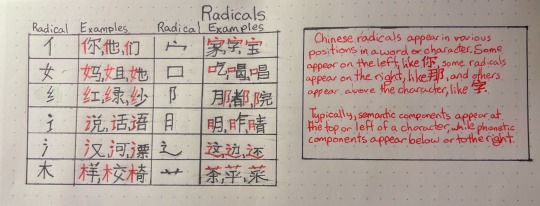 Radicals
Radical Examples Radical Examples
亻 你,他,们 宀 家,字,宝
女 妈,姐,她 口 吃,喝,唱
纟 红,绿,纱 阝 那,都,院
讠 说,话,语 日 明,昨,晴
氵 汉,河,漂 辶 这,边,还
木 样,校,椅 艹 茶,苹,菜
Chinese radicals appear in various
positions in a word or character. Some
appear on the left, like 你, some radicals
appear on the right, like 那, and others
appear above the character, like 字.
Typically, semantic components appear at
the top or left of a character, while phonetic
components appear below or to the right.